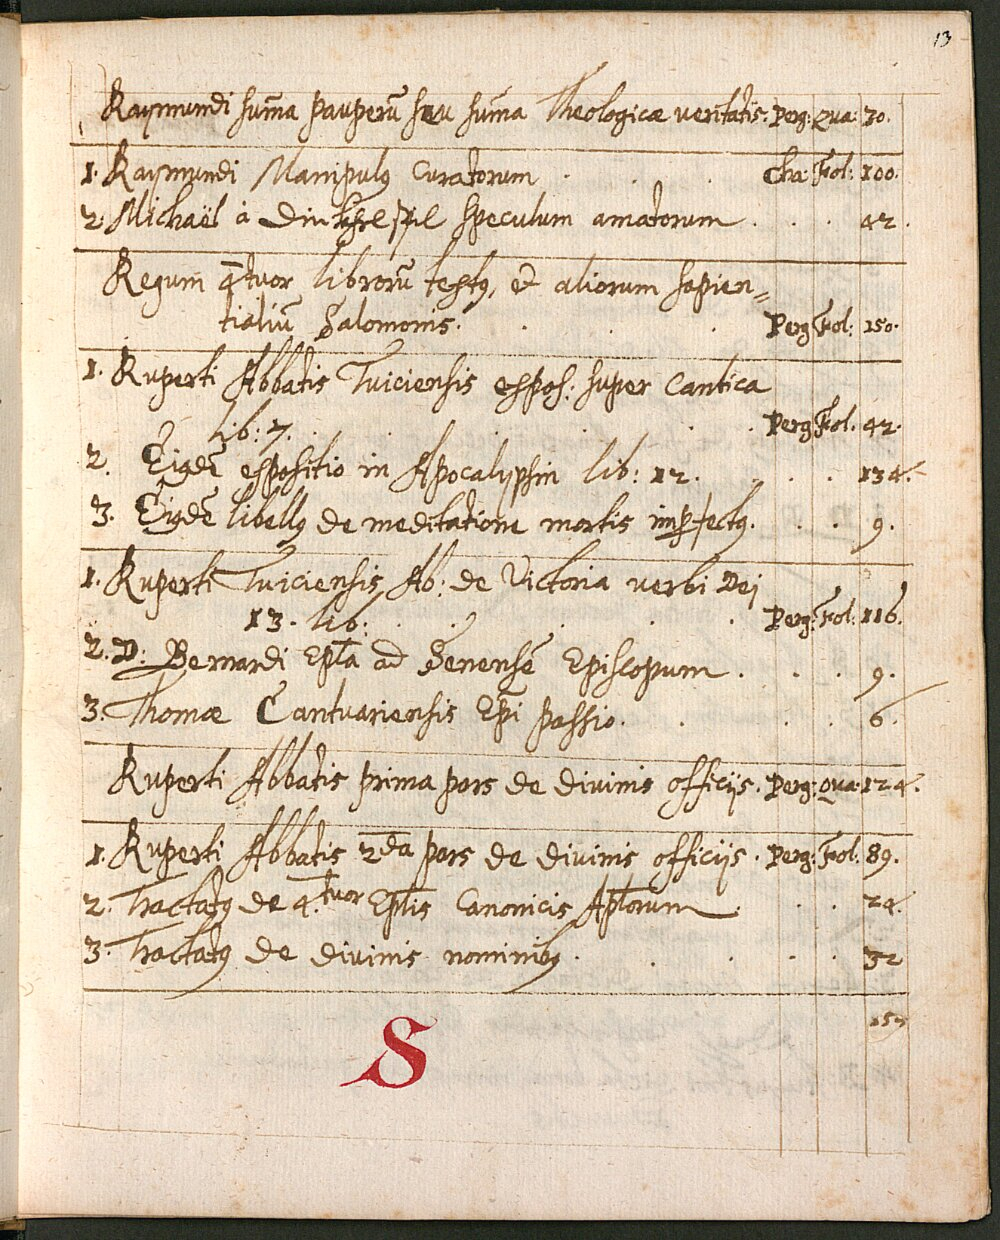 13
Raymundi sum̄a pauperū seu sum̄a Theologicæ veritatis. Perg: Qua: 30.
1. Raymundi Manipulꝰ Curatorum . . Cha: Fol: 100.
2. Michaël à Dinkhelspil speculum amatorum . . . 42.
Regum q̄tuor librorū textꝰ, et aliorum sapien=
tialiū Salomonis. . . . Perg Fol: 150.
1. Ruperti Abbatis Tuiciensis expos. super Cantica
lib: 7. . . . . Perg Fol. 42.
2. Eiusdē expositio in Apocalypsin lib: 12. . . . 134.
3. Eiusdē libellꝰ de meditatione mortis imꝑfectꝰ. . . . 9.
1. Ruperti Tuiciensis Ab: de Victoria verbi Dei
13. lib: . . . . Perg: Fol: 116.
2. D: Bernardi Epl̄a ad Senensē Episcopum . . . . 9.
3. Thomæ Cantuariensis Ep̄i passio. . . . 6.
Ruperti Abbatis prima pars de diuinis officijs. Perg: Qua: 124.
1. Ruperti Abbatis 2da pars de diuinis officijs. Perg: Fol: 89.
2. Tractatꝰ de 4.tuor Epl̄is Canonicis Apl̄orum . . . 24.
3. Tractatꝰ de diuinis nominibꝰ. . . . . 32
157
S